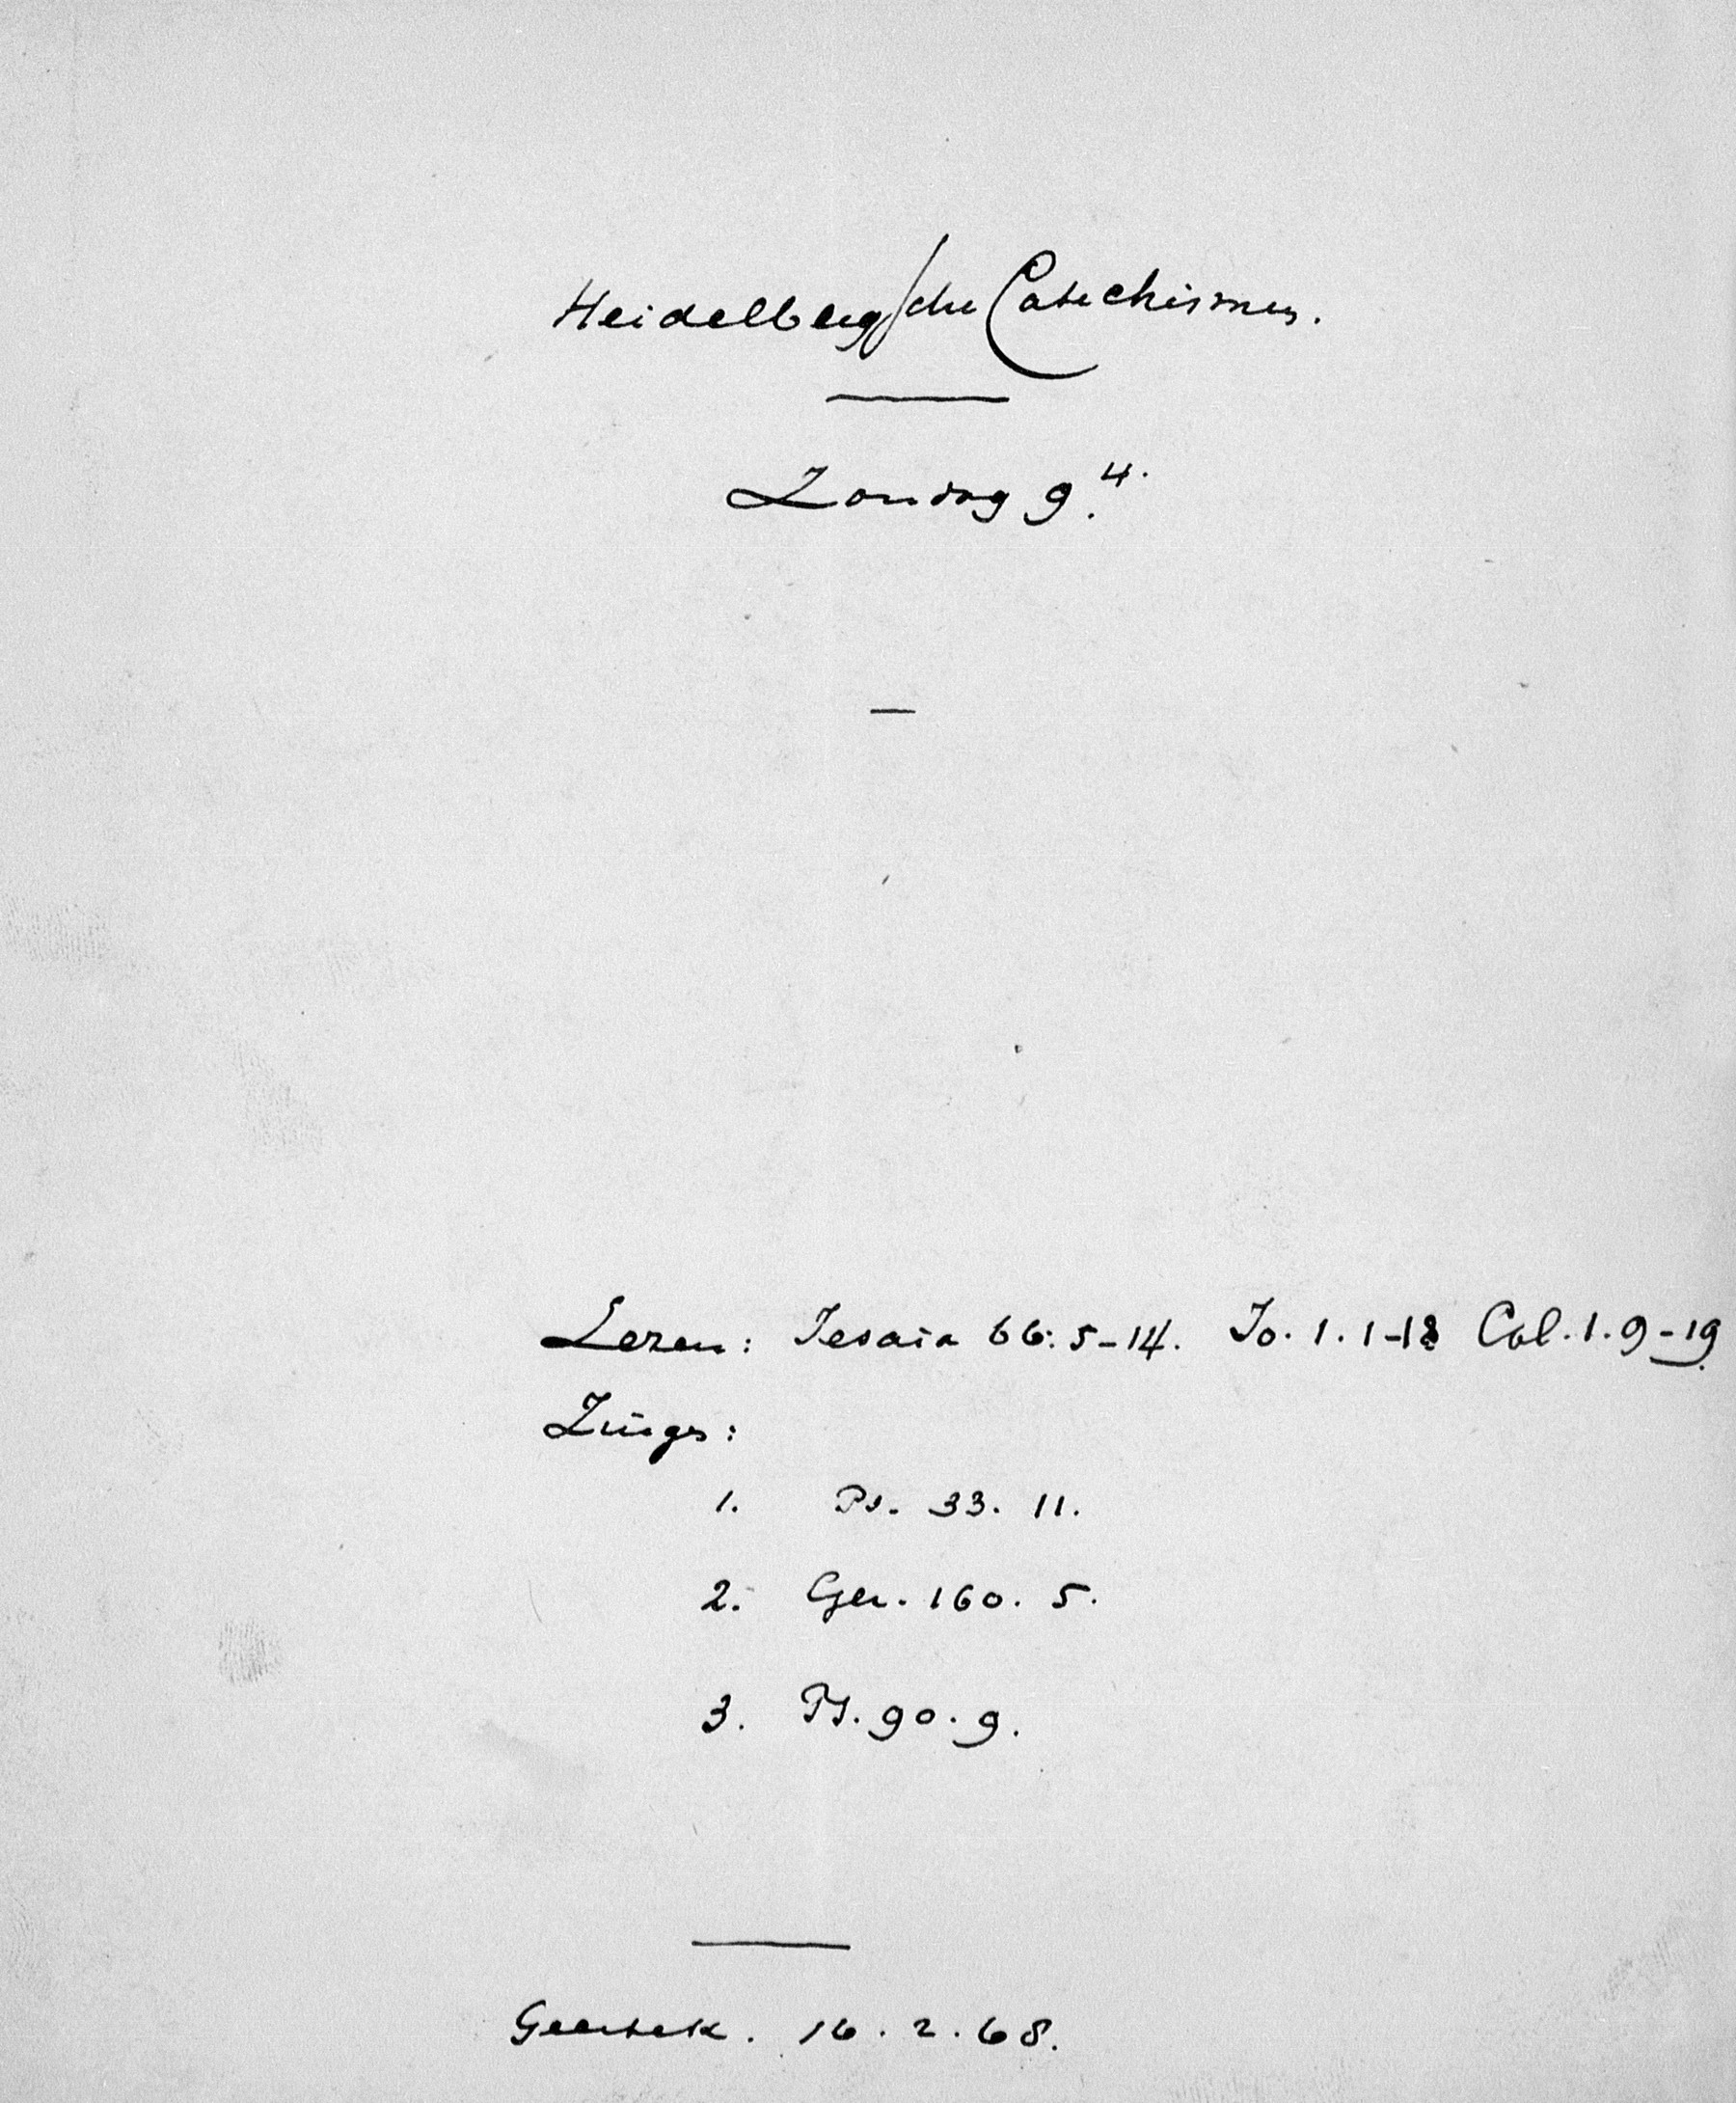 Heidelbergsche Catechismus.
Zondag 9.4.
Lezen: Jesaia 66: 5-14. Jo. 1. 1-18 Col. 1. 9-19.
Zingen:
1. Ps. 33. 11.
2. Gez. 160. 5.
3. Ps. 90. 9.
16. 2. 68.